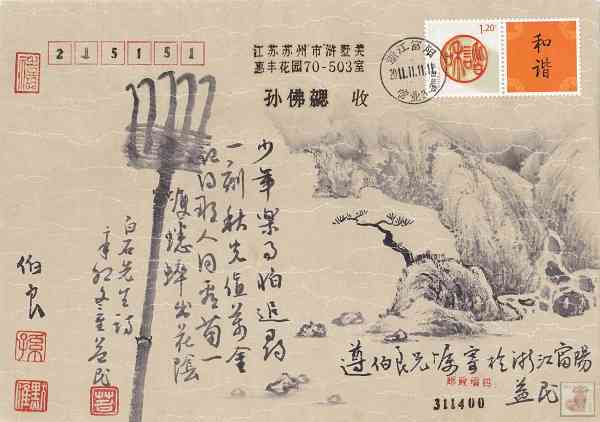 215151
江苏苏州市浒墅关
惠丰花园70-503室
孙佛勰 收
1.20
和谐
浙江富阳
11.11.11.11
少年樂事怕追尋
一刻秋光值萬金
記得那人同看菊一
雙蟋蟀出花陰
白石先生詩
辛卯冬益民
伯良
遵伯良兄嘱寄於浙江富陽
益民
邮政编码
311400